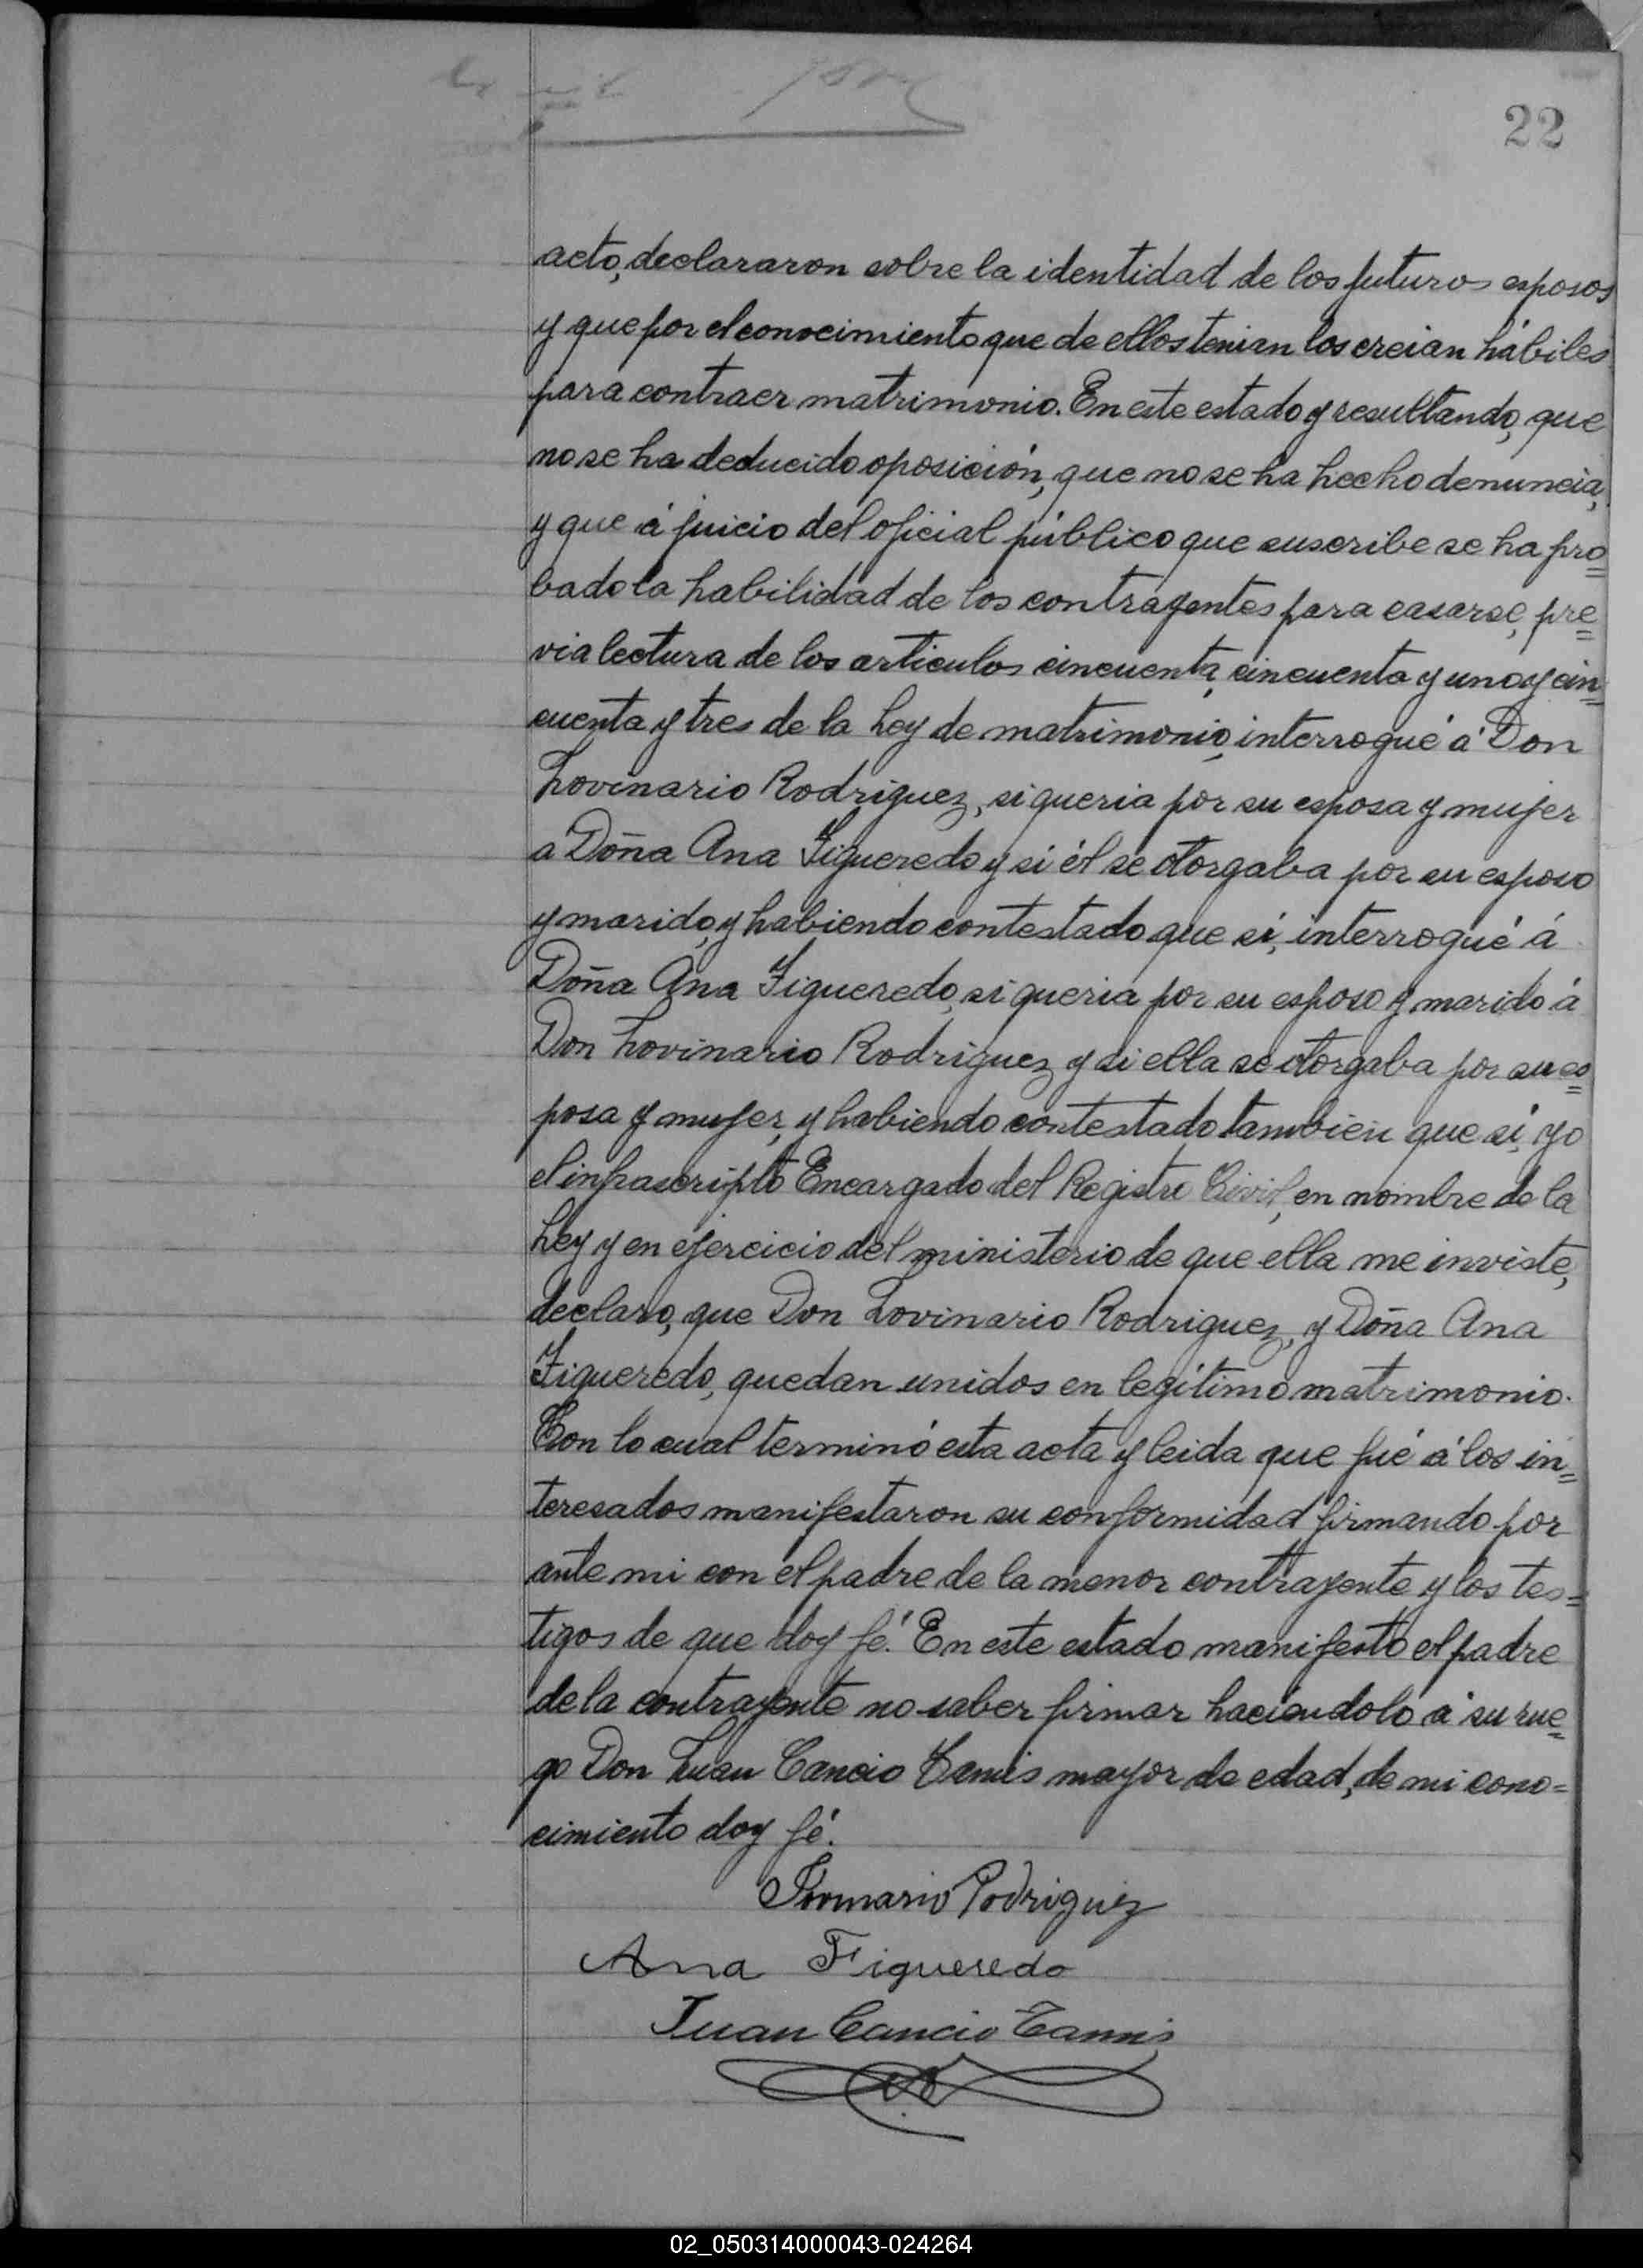 22
acto, declararon sobre la identidad de los futuros esposos
y que por el conocimiento que de ellos tenian los creian hábiles
para contraer matrimonio. En este estado y resultando, que
no se ha deducido oposición, que no se ha hecho denuncia,
y que á juicio del oficial público que suscribe se ha pro=
bado la habilidad de los contrayentes para casarse, pre=
via lectura de los articulos cincuenta, cincuenta y uno y cin=
cuenta y tres de la Ley de matrimonio, interrogué á Don
Lovinario Rodriguez, si queria por su esposa y mujer
a Doña Ana Figueredo y si él se otorgaba por su esposo
y marido, y habiendo contestado que sí, interrogué á
Doña Ana Figueredo, si queria por su esposo y marido á
Don Lovinario Rodriguez y si ella se otorgaba por su es=
posa y mujer, y habiendo contestado tambien que sí, yo
el infrascripto Encargado del Registro Civil, en nombre de la
Ley y en ejercicio del ministerio de que ella me inviste,
declaro, que Don Lovinario Rodriguez, y Doña Ana
Figueredo, quedan unidos en legítimo matrimonio.
Con lo cual terminó esta acta y leida que fué á los in=
teresados manifestaron su conformidad firmando por
ante mi con el padre de la menor contrayente y los tes=
tigos de que doy fé. En este estado manifestó el padre
de la contrayente no saber firmar haciendolo á su rue=
go Don Juan Cancio mayor de edad, de mi cono=
cimiento doy fé.
Rodriguez
Ana Figueredo
Juan Cancio
02_050314000043-024264